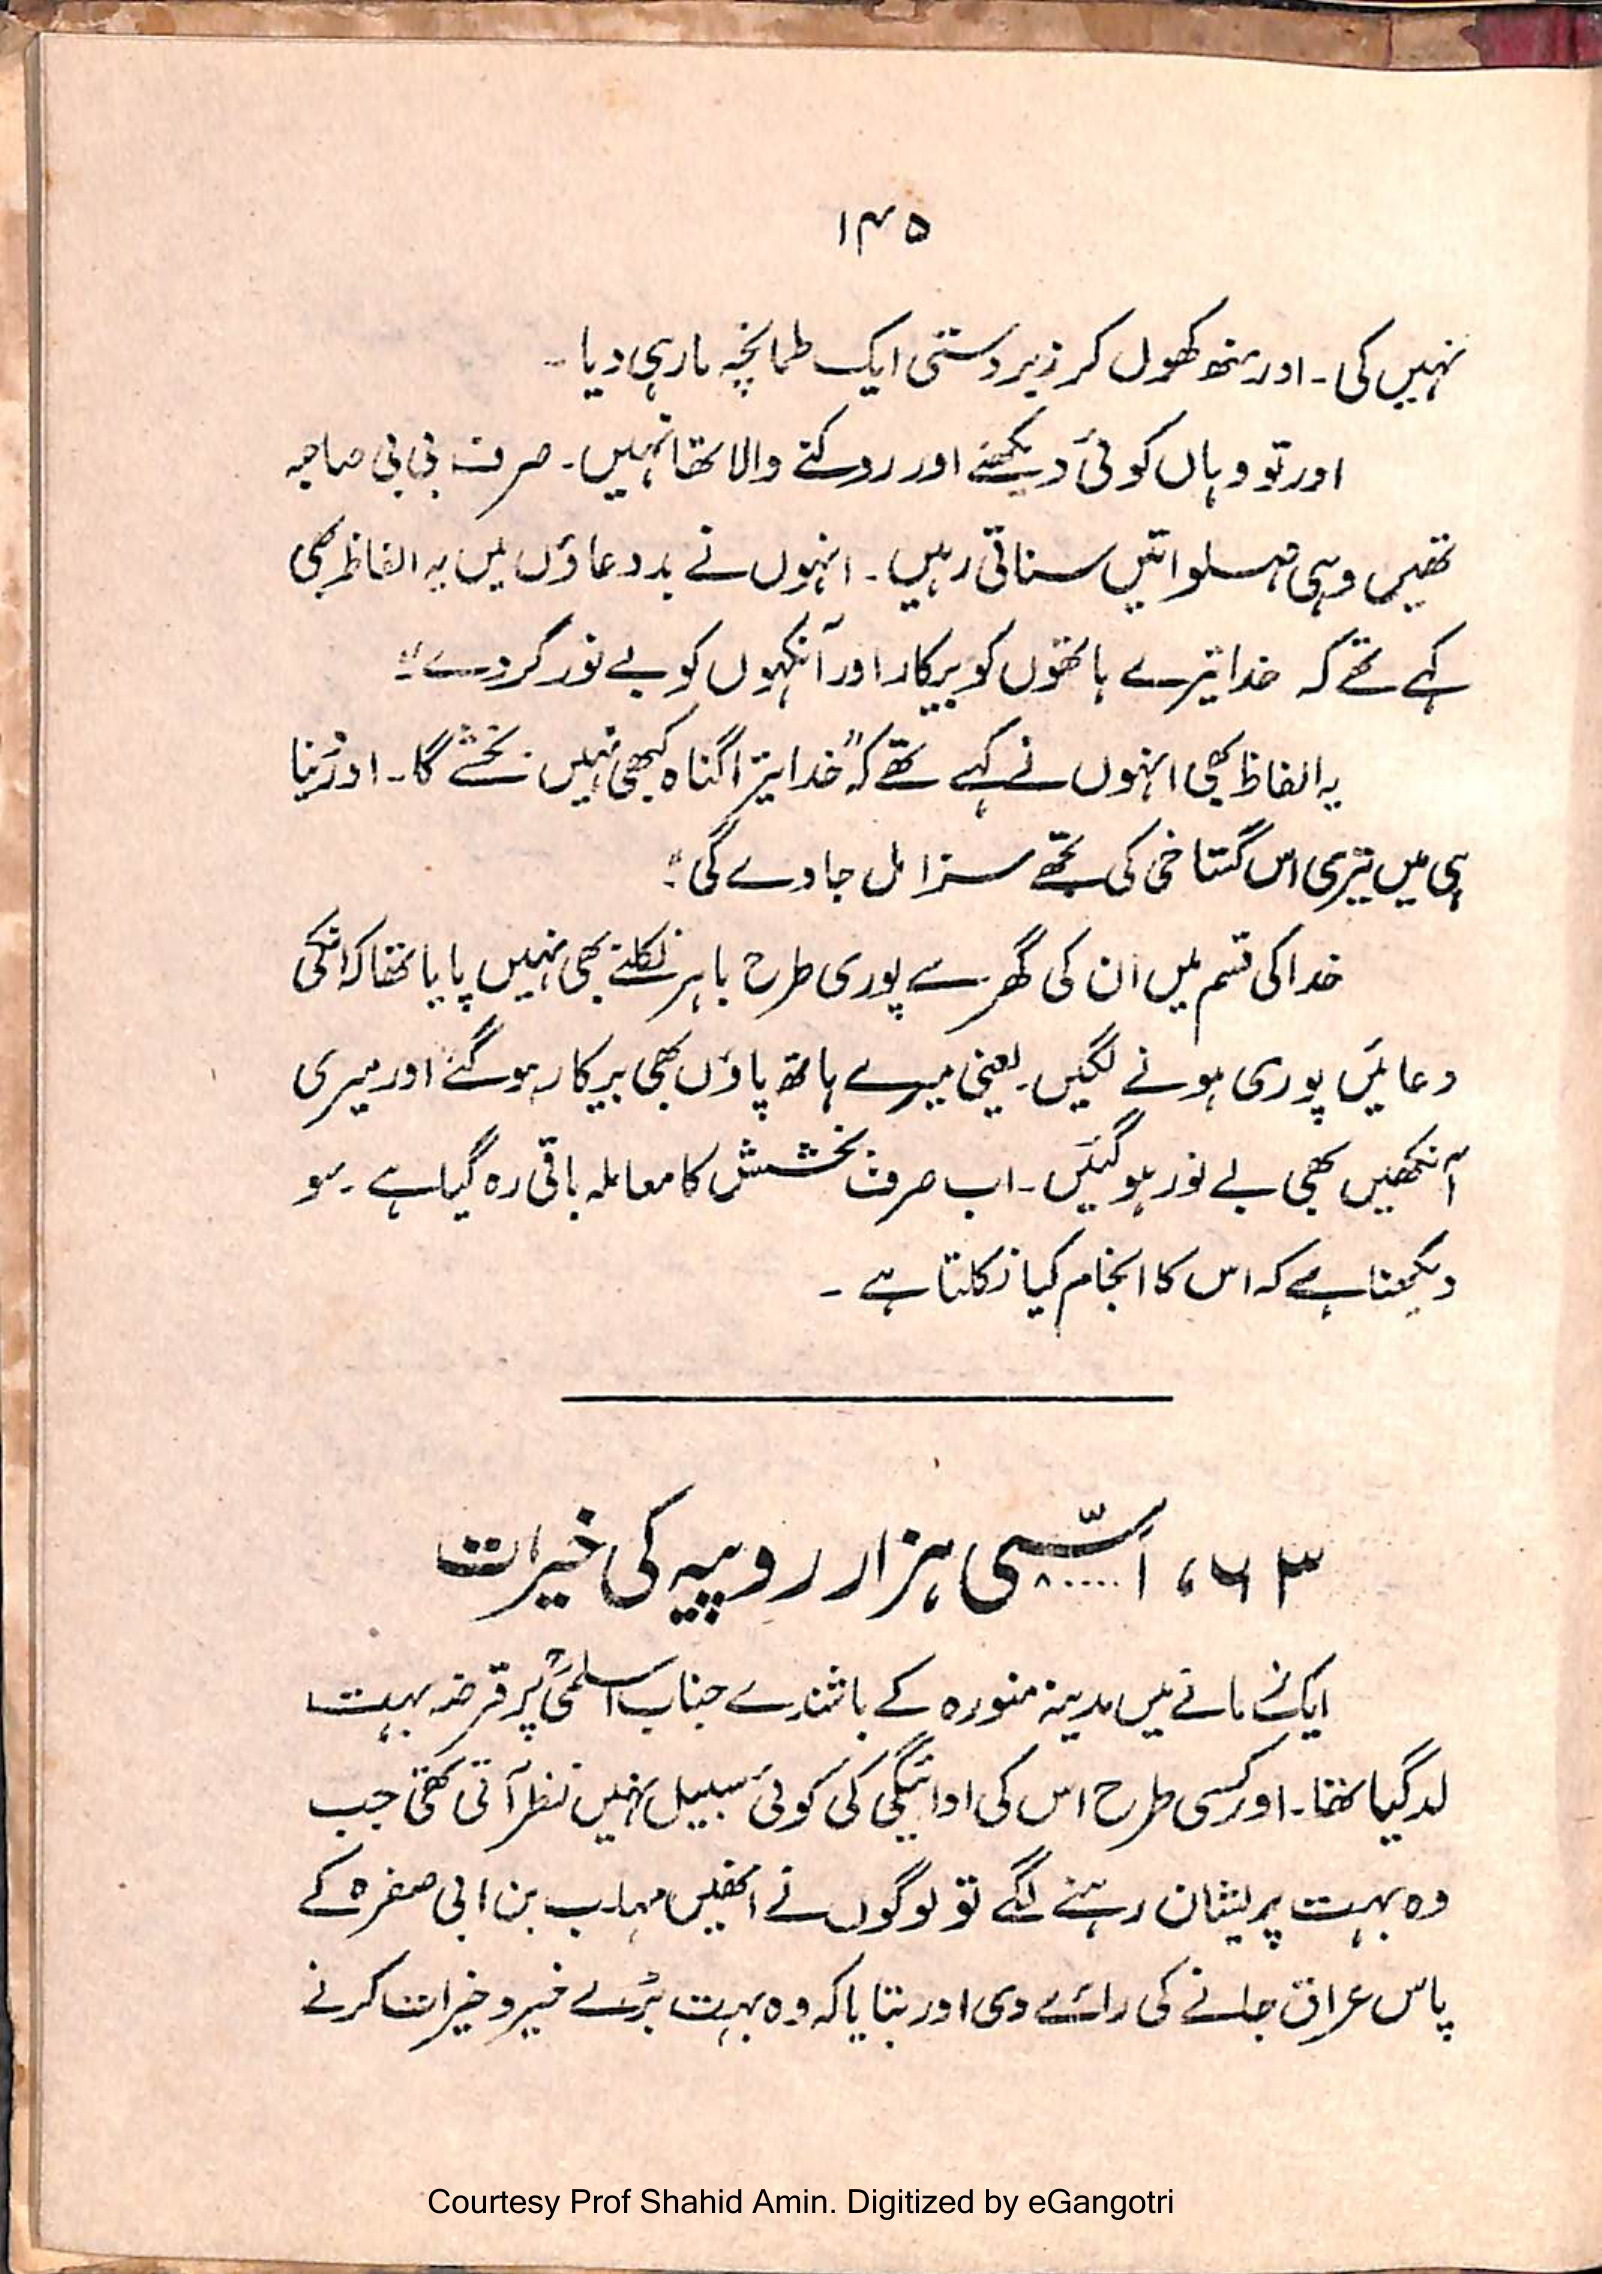 ۱۴۵
نہیں کی۔ اور منھ کھول کر زبردستی ایک طمانچہ مار ہی دیا۔
اور تو وہاں کوئی دیکھنے اور روکنے والا تھا نہیں۔ صرف بی بی صاحبہ
تھیں وہی صلواتیں سناتی رہیں۔ انہوں نے بددعاؤں میں یہ الفاظ بھی
کہے تھے کہ خدا تیرے ہاتھوں کو بیکار اور آنکہوں کو بے نور کر دے"
یہ الفاظ بھی انہوں نے کہے تھے کہ "خدا تیرا گناہ کبھی نہیں بخشے گا۔ اور دنیا
ہی میں تیری اس گستاخی کی تجھے سزا مل جاوے گی"
خدا کی قسم میں ان کی گھر سے پوری طرح باہر نکلنے بھی نہیں پایا تھا کہ انکی
دعائیں پوری ہونے لگیں۔ یعنی میرے ہاتھ پاؤں بھی بیکار ہو گئے اور میری
آنکھیں بھی بے نور ہو گئیں۔ اب صرف بخشش کا معاملہ باقی رہ گیا ہے۔ سو
دیکھنا ہے کہ اس کا انجام کیا نکلتا ہے۔
۶۳، اسّی ۸۰۰۰۰ ہزار روپیہ کی خیرات
ایک زمانے میں مدینہ منورہ کے باشندے جناب اسلمیؓ پر قرضہ بہت
لد گیا تھا۔ اور کسی طرح اس کی ادائیگی کی کوئی سبیل نہیں نظر آتی تھی جب
وہ بہت پریشان رہنے لگے تو لوگوں نے انھیں مہلب بن ابی صفرہ کے
پاس عراق جانے کی رائے دی اور بتایا کہ وہ بہت بڑے خیر و خیرات کرنے
Courtesy Prof Shahid Amin. Digitized by eGangotri